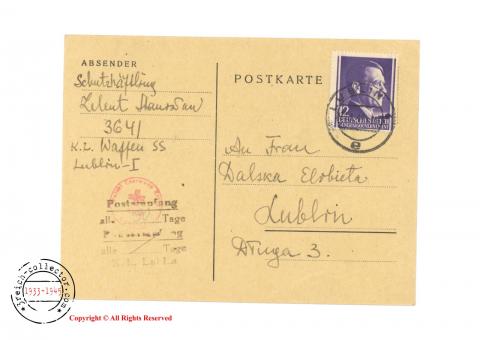 ABSENDER
Schutzhäftling
Zelent Stanisław
3641
K.L. Waffen SS
Lublin-I
POSTKARTE
12
DEUTSCHES REICH
GENERALGOUVERNEMENT
e
An Frau
Dalska Elżbieta
Lublin
Długa 3.
Postempfang
alle Tage
alle Tage
K.L. Lublin
reich-collector.com
1933-1945
Copyright © All Rights Reserved